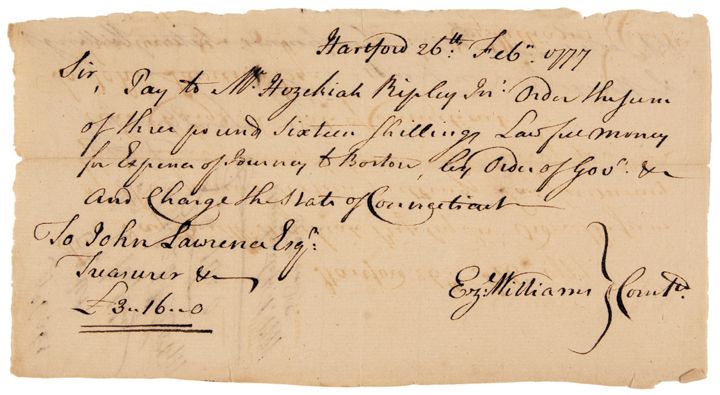 Hartford 26th. Feby. 1777
Sir, Pay to Mr. Hozekiah Ripley Jnr. Order the sum
of three pound Sixteen Shillings Lawfull money
for Expence of Journey to Boston, by Order of Govr. &c
and Charge the State of Connecticut
To John Lawrence Esqr.
Treasurer &c
£3..16..0
Ezr. Williams } Comtee.